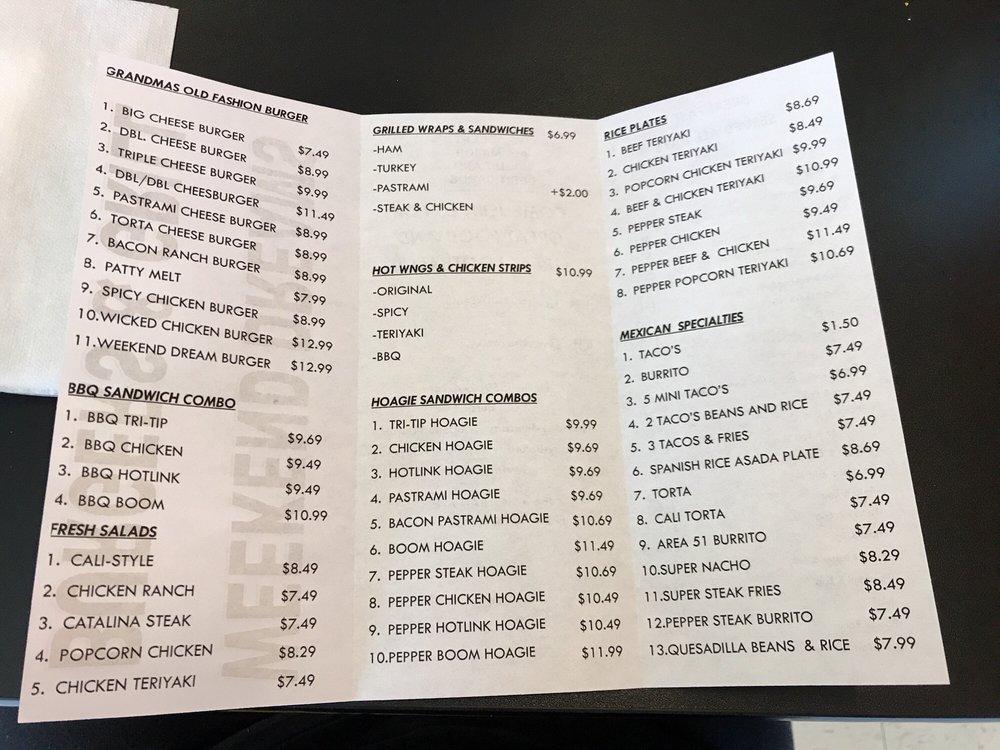 GRANDMAS OLD FASHION BURGER
1. BIG CHEESE BURGER $7.49
2. DBL. CHEESE BURGER $8.99
3. TRIPLE CHEESE BURGER $9.99
4. DBL/DBL CHEESBURGER $11.49
5. PASTRAMI CHEESE BURGER $8.99
6. TORTA CHEESE BURGER $8.99
7. BACON RANCH BURGER $8.99
8. PATTY MELT $7.99
9. SPICY CHICKEN BURGER $8.99
10.WICKED CHICKEN BURGER $12.99
11.WEEKEND DREAM BURGER $12.99
BBQ SANDWICH COMBO
1. BBQ TRI-TIP $9.69
2. BBQ CHICKEN $9.49
3. BBQ HOTLINK $9.49
4. BBQ BOOM $10.99
FRESH SALADS
1. CALI-STYLE $8.49
2. CHICKEN RANCH $7.49
3. CATALINA STEAK $7.49
4. POPCORN CHICKEN $8.29
5. CHICKEN TERIYAKI $7.49
GRILLED WRAPS & SANDWICHES $6.99
-HAM
-TURKEY
-PASTRAMI +$2.00
-STEAK & CHICKEN
HOT WNGS & CHICKEN STRIPS $10.99
-ORIGINAL
-SPICY
-TERIYAKI
-BBQ
HOAGIE SANDWICH COMBOS
1. TRI-TIP HOAGIE $9.99
2. CHICKEN HOAGIE $9.69
3. HOTLINK HOAGIE $9.69
4. PASTRAMI HOAGIE $9.69
5. BACON PASTRAMI HOAGIE $10.69
6. BOOM HOAGIE $11.49
7. PEPPER STEAK HOAGIE $10.69
8. PEPPER CHICKEN HOAGIE $10.49
9. PEPPER HOTLINK HOAGIE $10.49
10.PEPPER BOOM HOAGIE $11.99
RICE PLATES
1. BEEF TERIYAKI $8.69
2. CHICKEN TERIYAKI $8.49
3. POPCORN CHICKEN TERIYAKI $9.99
4. BEEF & CHICKEN TERIYAKI $10.99
5. PEPPER STEAK $9.69
6. PEPPER CHICKEN $9.49
7. PEPPER BEEF & CHICKEN $11.49
8. PEPPER POPCORN TERIYAKI $10.69
MEXICAN SPECIALTIES
1. TACO'S $1.50
2. BURRITO $7.49
3. 5 MINI TACO'S $6.99
4. 2 TACO'S BEANS AND RICE $7.49
5. 3 TACOS & FRIES $7.49
6. SPANISH RICE ASADA PLATE $8.69
7. TORTA $6.99
8. CALI TORTA $7.49
9. AREA 51 BURRITO $7.49
10.SUPER NACHO $8.29
11.SUPER STEAK FRIES $8.49
12.PEPPER STEAK BURRITO $7.49
13.QUESADILLA BEANS & RICE $7.99